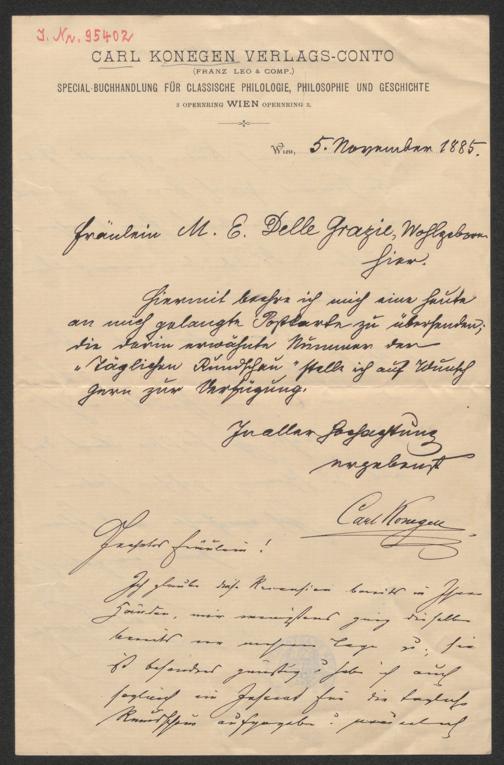 J. Nr. 95402
CARL KONEGEN VERLAGS-CONTO
(FRANZ LEO & COMP.)
SPECIAL-BUCHHANDLUNG FÜR CLASSISCHE PHILOLOGIE, PHILOSOPHIE UND GESCHICHTE
3 OPERNRING WIEN OPERNRING 3.
Wien, 5. November 1885.
Fräulein M. E. Delle Grazie, Wohlgeboren
Hier.
Hiermit beehre ich mich eine heute
an mich gelangte Postkarte zu übersenden;
die darin erwähnte Nummer der
„Täglichen Rundschau“ stelle ich auf Wunsch
gern zur Verfügung.
In aller Hochachtung
ergebenst
Carl Konegen
Geehrtes Fräulein!
Ich glaube diese Recension bereits in Ihren
Händen, mir wenigstens ging dieselbe
bereits vor Tage zu, sie
ist besonders günstig u. habe ich auch
sogleich ein Inserat für die tägliche
Rundschau aufgegeben